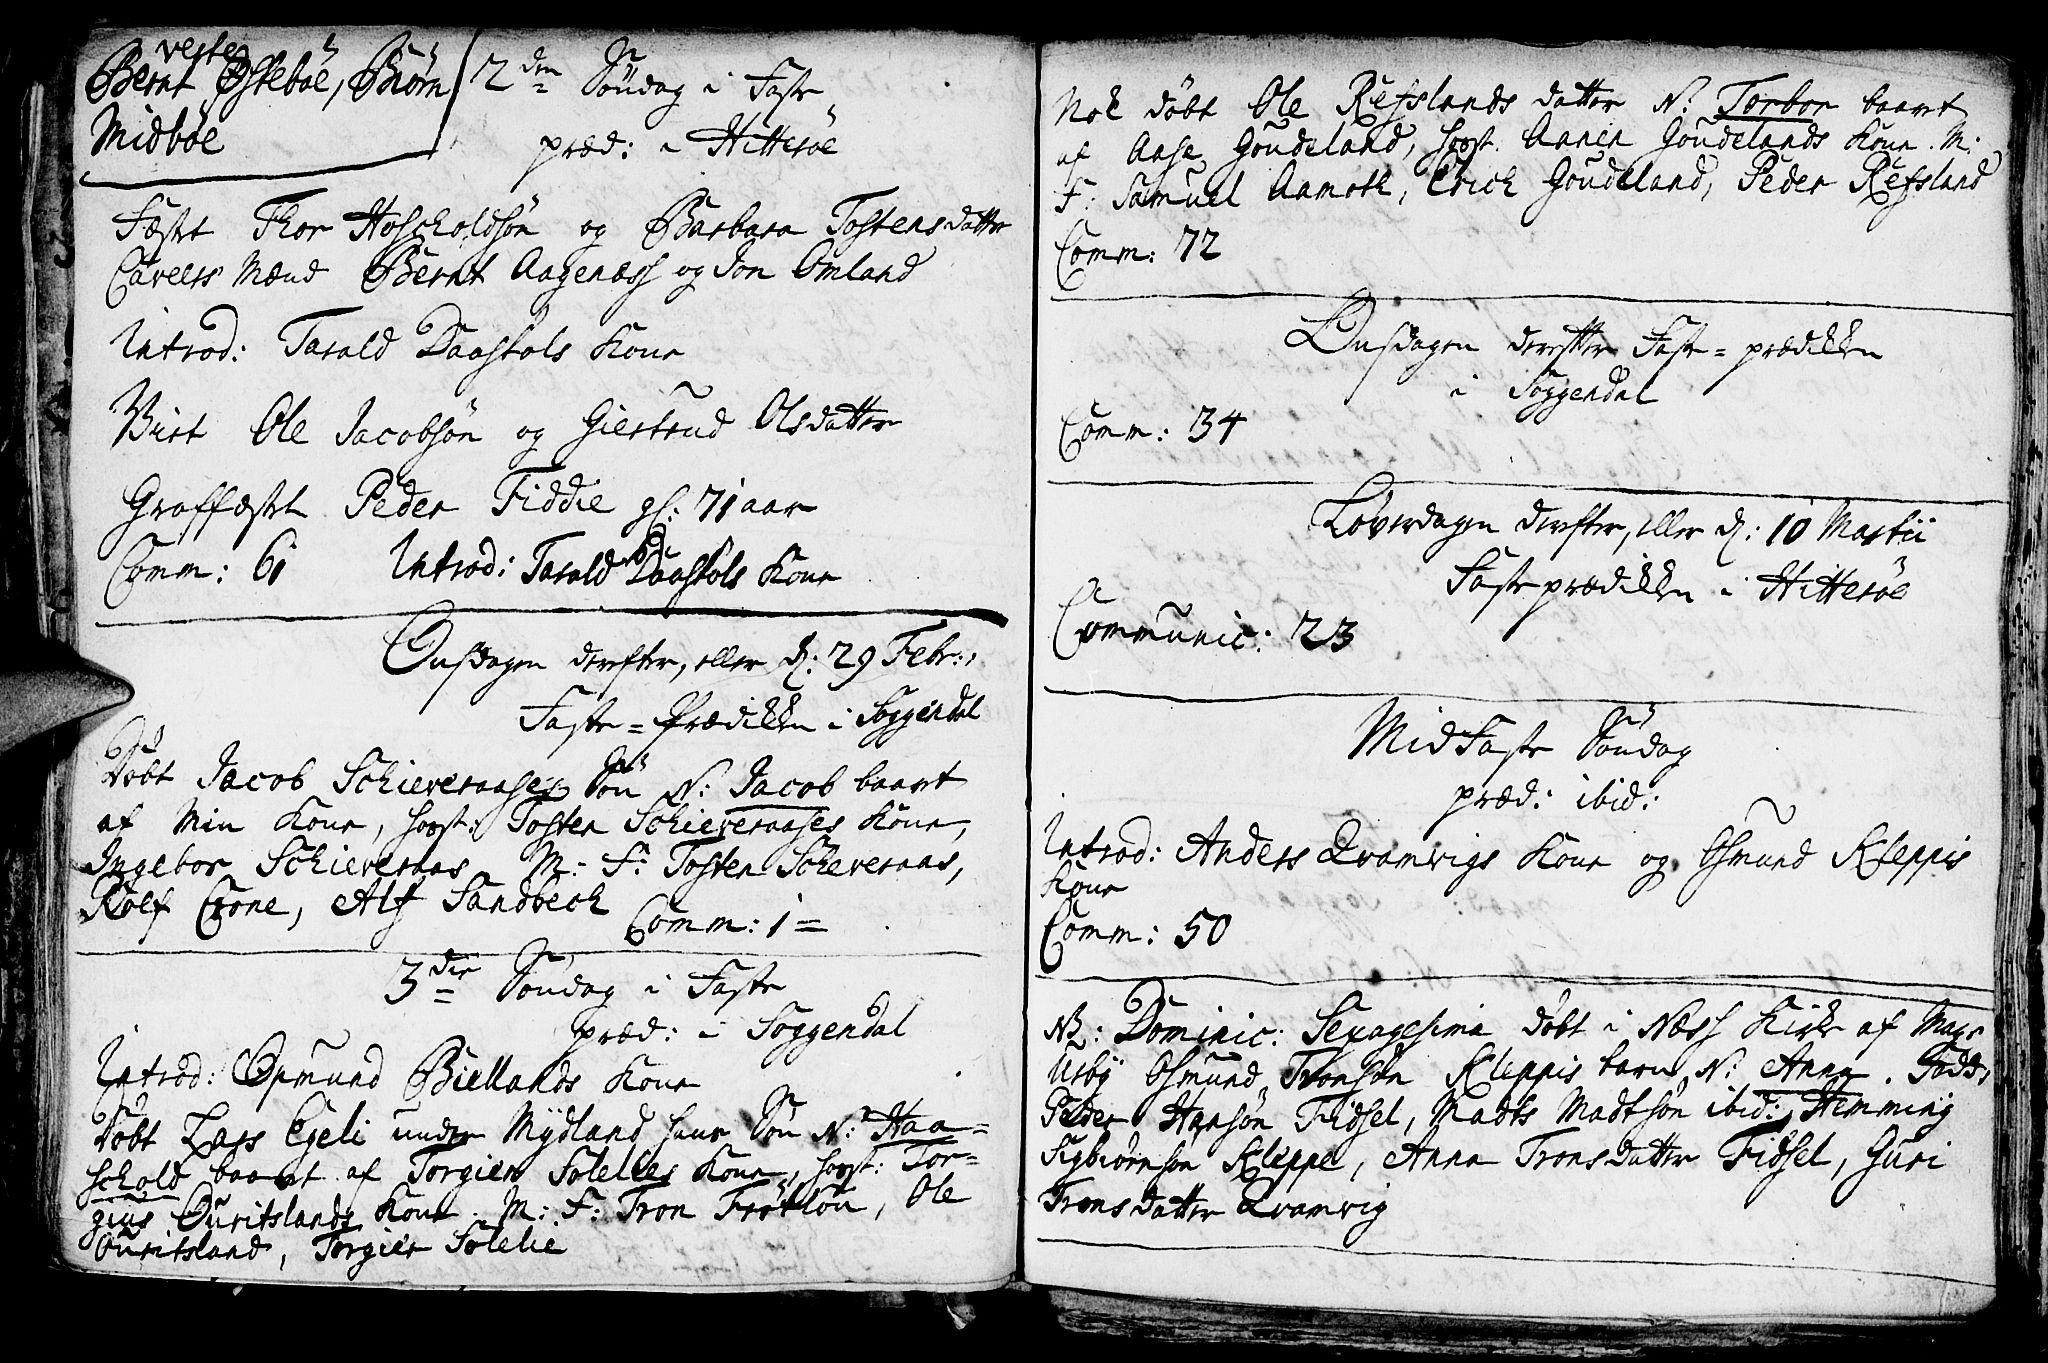 veste
Bernt Østebøe, Biørn
Midbøe
2den Søndag i Faste
præd: i Hitterøe
Fæstet Thor Hoscholdsøn og Barbara Tostensdatter
Caveers Mænd Bernt Aagenæss og Jon Omland
Introd: Tarald Daastols Kone
Viet Ole Jacobsøn og Giertrud Olsdatter
Graffæstet Peder Fiddie gl: 71 aar
Comm: 61 Introd: Tarald Daastols Kone
Onsdagen derefter, eller d: 29 Febr:,
Faste=Prædikken i Soggendal
Døbt Jacob Schieveraases Søn N: Jacob baaret
af Min Kone, hoost: Tosten Schieveraases Kone,
Ingebor Schieveraas M: F: Tosten Scheveraas,
Rolf Crone, Alf Sandbeck
Comm: 1=
3die Søndag i Faste
præd: i Soggendal
Introd: Opmund Biellands Kone
Døbt Lars Egeli under Mydland hans Søn N: Haa=
schold baaret af Torgier Solelies Kone, hoost: Tor=
gius Ouritslands Kone. M: F: Tron Frøtlou, Ole
Ouritsland, Torgier Solelie
Nok døbt Ole Refslands datter N: Torbor baaret
af Aase Goudeland, hoost. Annen Goudelands Kone. M:
F: Samuel Aamoth, Erich Goudeland, Peder Refsland
Comm: 72
Onsdagen derefter Faste=prædikken
i Soggendal
Comm: 34
Løverdagen derefter, eller d: 10 Martii
Fasteprædikken i Hitterøe
Communic: 23
MidFaste Søndag
præd: ibid:
Introd: Anders Qvamvigs Kone og Osmund Kleppis
Kone
Comm: 50
NB: Dominic: Sexagesima døbt i Næss Kirke af Mags
Usby Osmund Tronsøn Kleppis barn N: Anna. Fadd:
Peder Hansøn Fidsel, Madts Madtsøn ibid:, Hemming
Sigbiørnsøn Kleppe, Anna Tronsdatter Fidsel, Guri
Tronsdatter Qvamvig